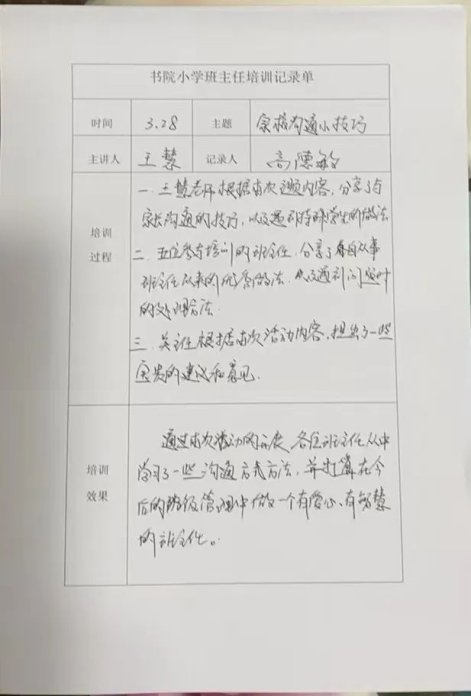 书院小学班主任培训记录单
时间 3.28 主题 家校沟通小技巧
主讲人 王慧 记录人 高德敏
培训过程
一. 王慧老师根据本次主题内容，分享了与
家长沟通的技巧，以及遇到特殊学生的做法.
二. 五位参与培训的班主任，分享了各自从事
班主任以来的优秀做法，以及遇到问题时
的处理方法.
三. 主任根据本次活动内容，提出了一些
宝贵的建议和意见.
培训效果
通过本次活动的开展，各位班主任从中
学习了一些沟通方式方法，并打算在今
后的班级管理中做一个有爱心、有智慧
的班主任。